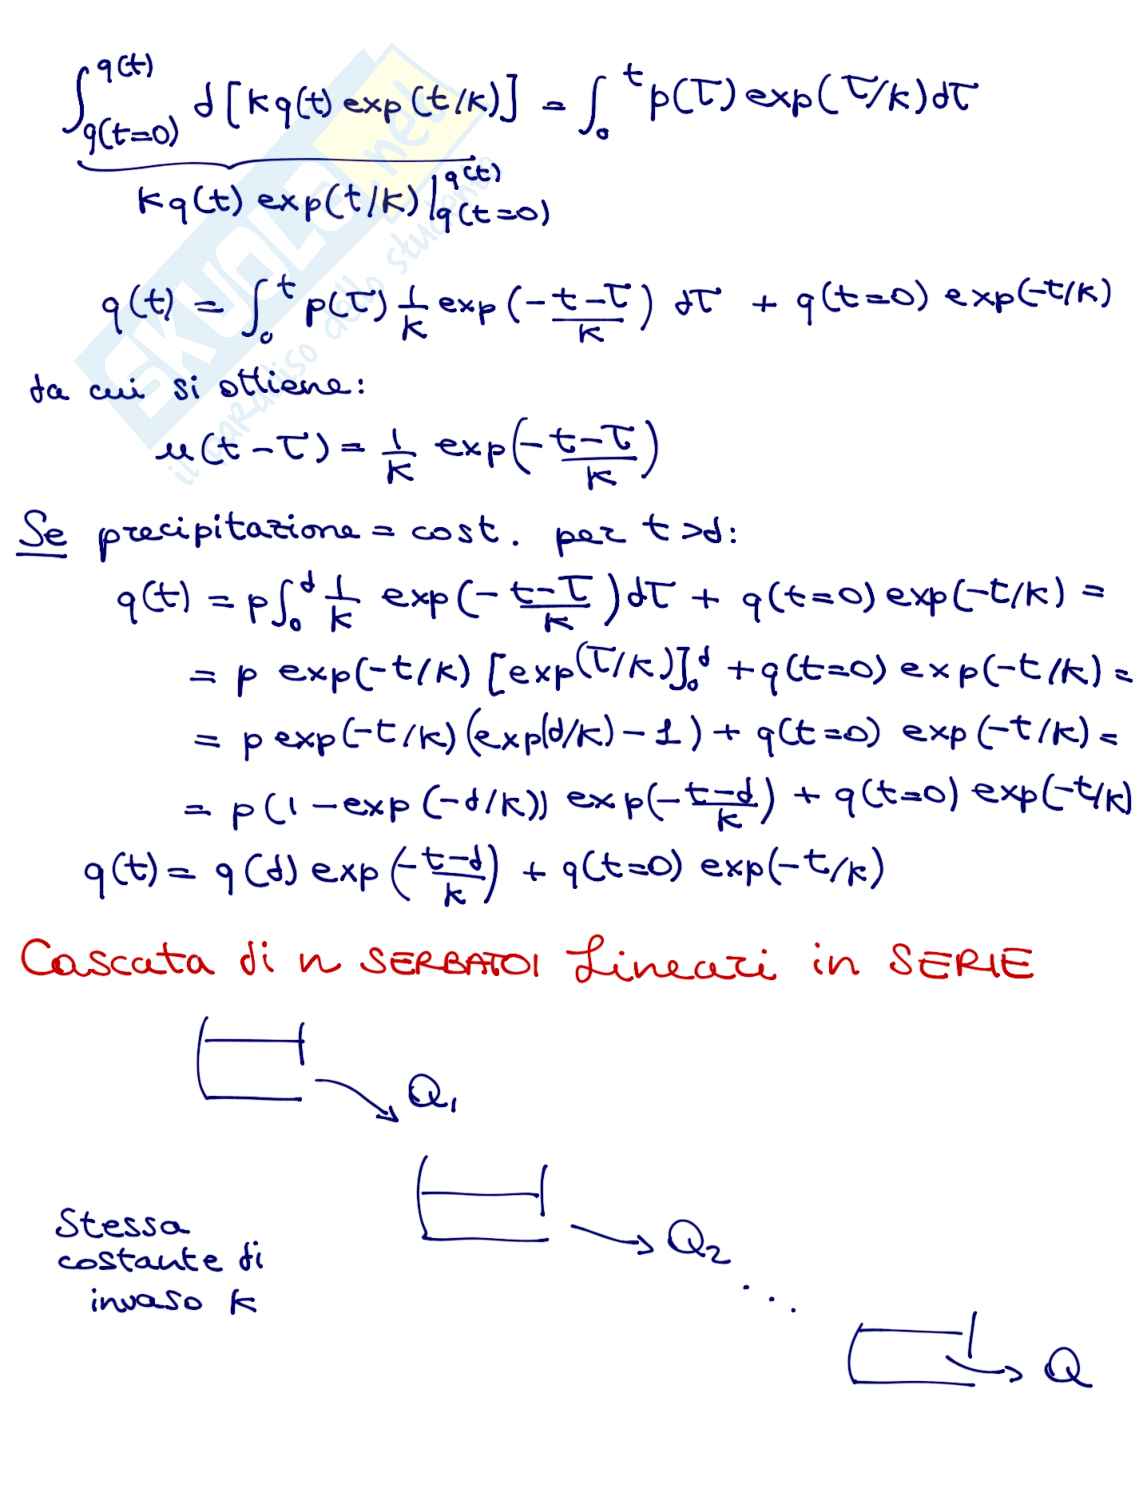 ∫_{q(t=0)}^{q(t)} d[kq(t) exp(t/k)] = ∫_0^t p(τ) exp(τ/k)dτ
kq(t) exp(t/k)|_{q(t=0)}^{q(t)}
q(t) = ∫_0^t p(τ) 1/k exp(-(t-τ)/k) dτ + q(t=0) exp(-t/k)
da cui si ottiene:
u(t-τ) = 1/k exp(-(t-τ)/k)
Se precipitazione = cost. per t>d:
q(t) = p∫_0^d 1/k exp(-(t-τ)/k)dτ + q(t=0) exp(-t/k) =
= p exp(-t/k) [exp(τ/k)]_0^d + q(t=0) exp(-t/k) =
= p exp(-t/k)(exp(d/k) - 1) + q(t=0) exp(-t/k) =
= p(1 - exp(-d/k)) exp(-(t-d)/k) + q(t=0) exp(-t/k)
q(t) = q(d) exp(-(t-d)/k) + q(t=0) exp(-t/k)
Cascata di n SERBATOI Lineari in SERIE
Q1
Stessa
costante di
invaso k
Q2
...
Q
SKUOLA.net
il paradiso dello studente